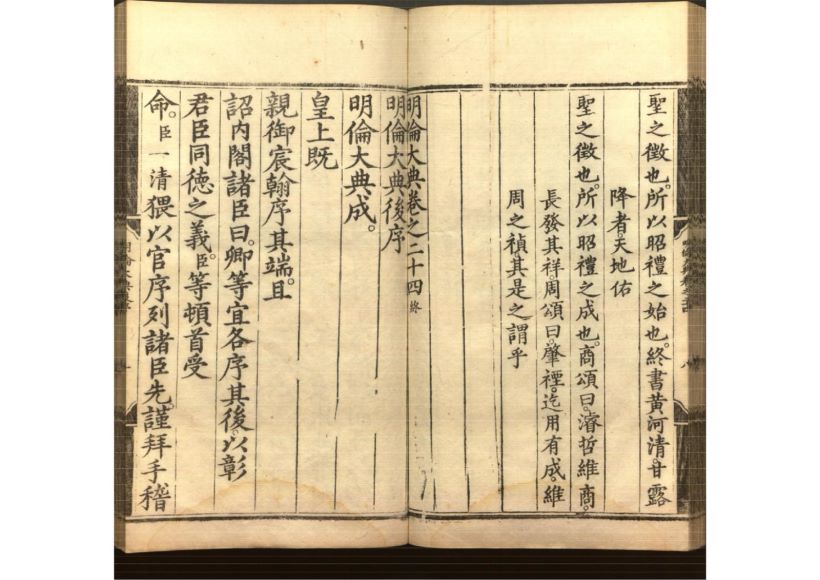 聖之徵也。所以昭禮之始也。終書黄河清。甘露
降者。天地佑
聖之徵也。所以昭禮之成也。商頌曰。濬哲維商。
長發其祥。周頌曰。肇禋。迄用有成。維
周之禎。其是之謂乎
明倫大典卷之二十四終
明倫大典後序
明倫大典成。
皇上既
親御宸翰序其端。且
詔内閣諸臣曰。卿等宜各序其後。以彰
君臣同徳之義。臣等頓首受
命。臣一清猥以官序列諸臣先。謹拜手稽